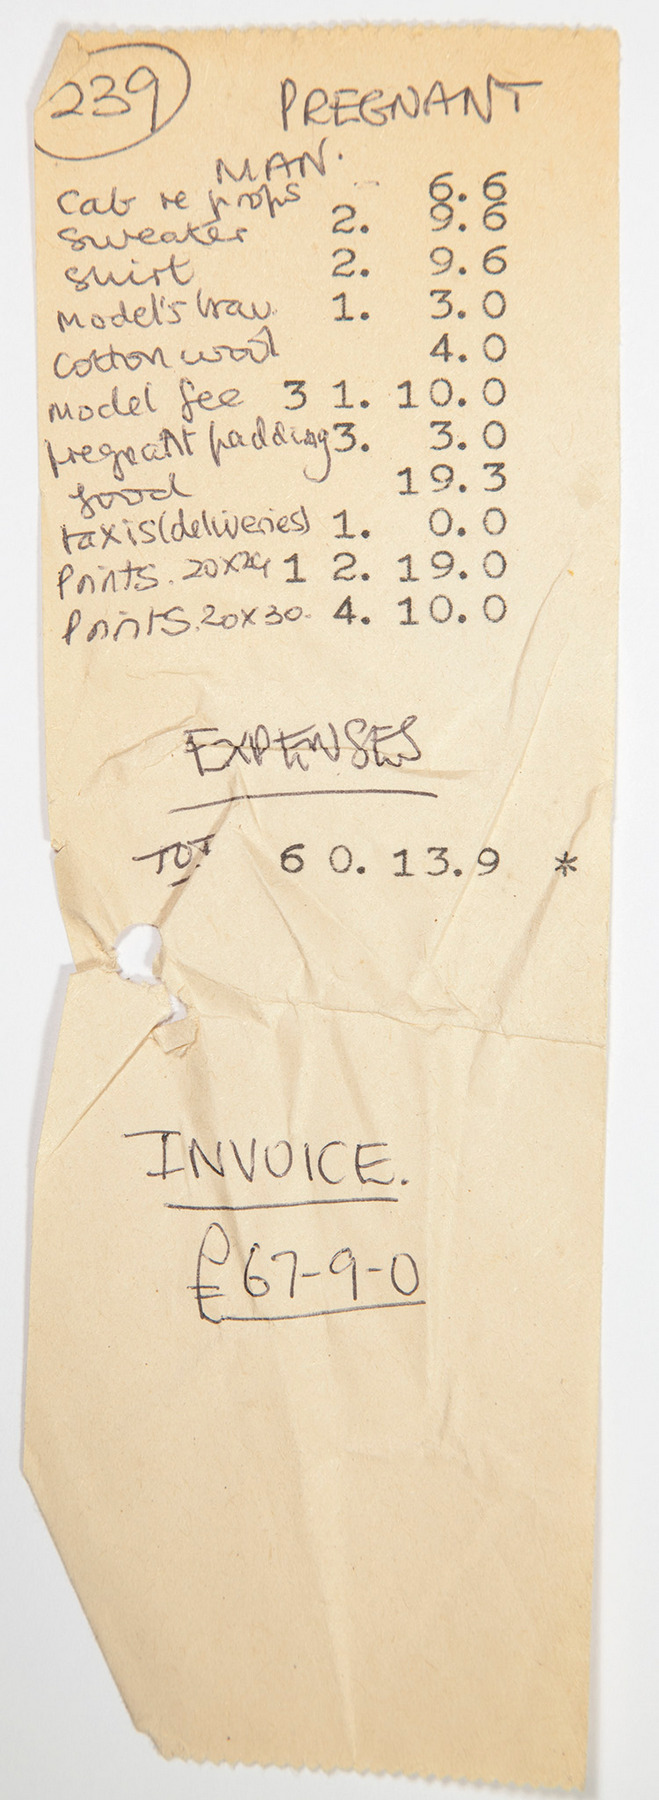 239 PREGNANT
MAN.
Cab re props 6.6
Sweater 2. 9.6
Shirt 2. 9.6
Model's trav. 1. 3.0
Cotton wool 4.0
Model fee 3 1. 10.0
Pregnant padding 3. 3.0
food 19.3
taxis (deliveries) 1. 0.0
Prints. 20x24 1 2. 19.0
Prints. 20x30. 4. 10.0
EXPENSES
TOT 6 0. 13.9 *
INVOICE.
£67-9-0